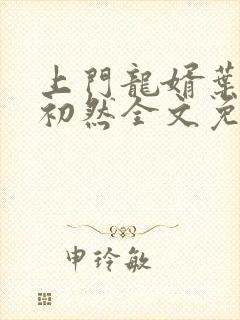 上門龍婿葉
初然全文免
申玲敏